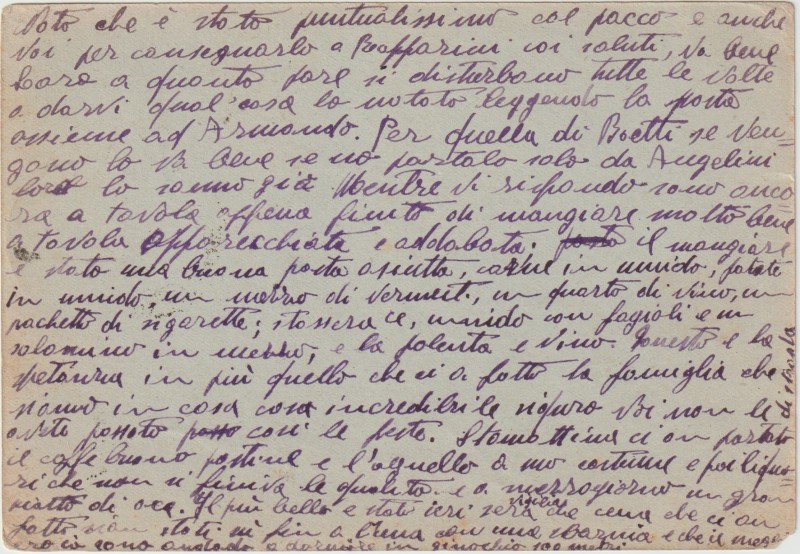 Noto che è stato puntualissimo col pacco e anche
Voi per consegnarlo a i saluti, va bene
Caro a quanto pare si disturbano tutte le volte
a darvi qual'cosa lo notato leggendo la posta
assieme ad Armando. Per quella di Boetti se ven=
gano lo va bene se no portalo solo da Angelini
lo sanno già Mentre vi rispondo sono anco
ra a tavola appena finito di mangiare molto bene
a tavola apparecchiata e addobata; il mangiare
e stato una buona pasta asiutta, carne in umido, patate
in umido, un mezzo di Vermut., un quarto di vino, un
pachetto di sigarette; stassera ce, umido con fagioli e un
salamino in mezzo, e la polenta e vino. Questo e la
spetanza in più quello che ci a fatto la famiglia che
siamo in casa cosa incredibile siguro Voi non le
avete passato cosi le feste. Stamattina ci an portato
il caffe buono pastine e l'agnello a mo costume e poi liquo=
ri che non si finiva le qualità. e a mezzogiorno un gran
piatto di oca. Il più bello e stato ieri sera vigilia che cena che ci an
fatto siam stati su fin a l'una con una sbornia e che il
io sono andato a dormire in ginochio 100 metri
distanza